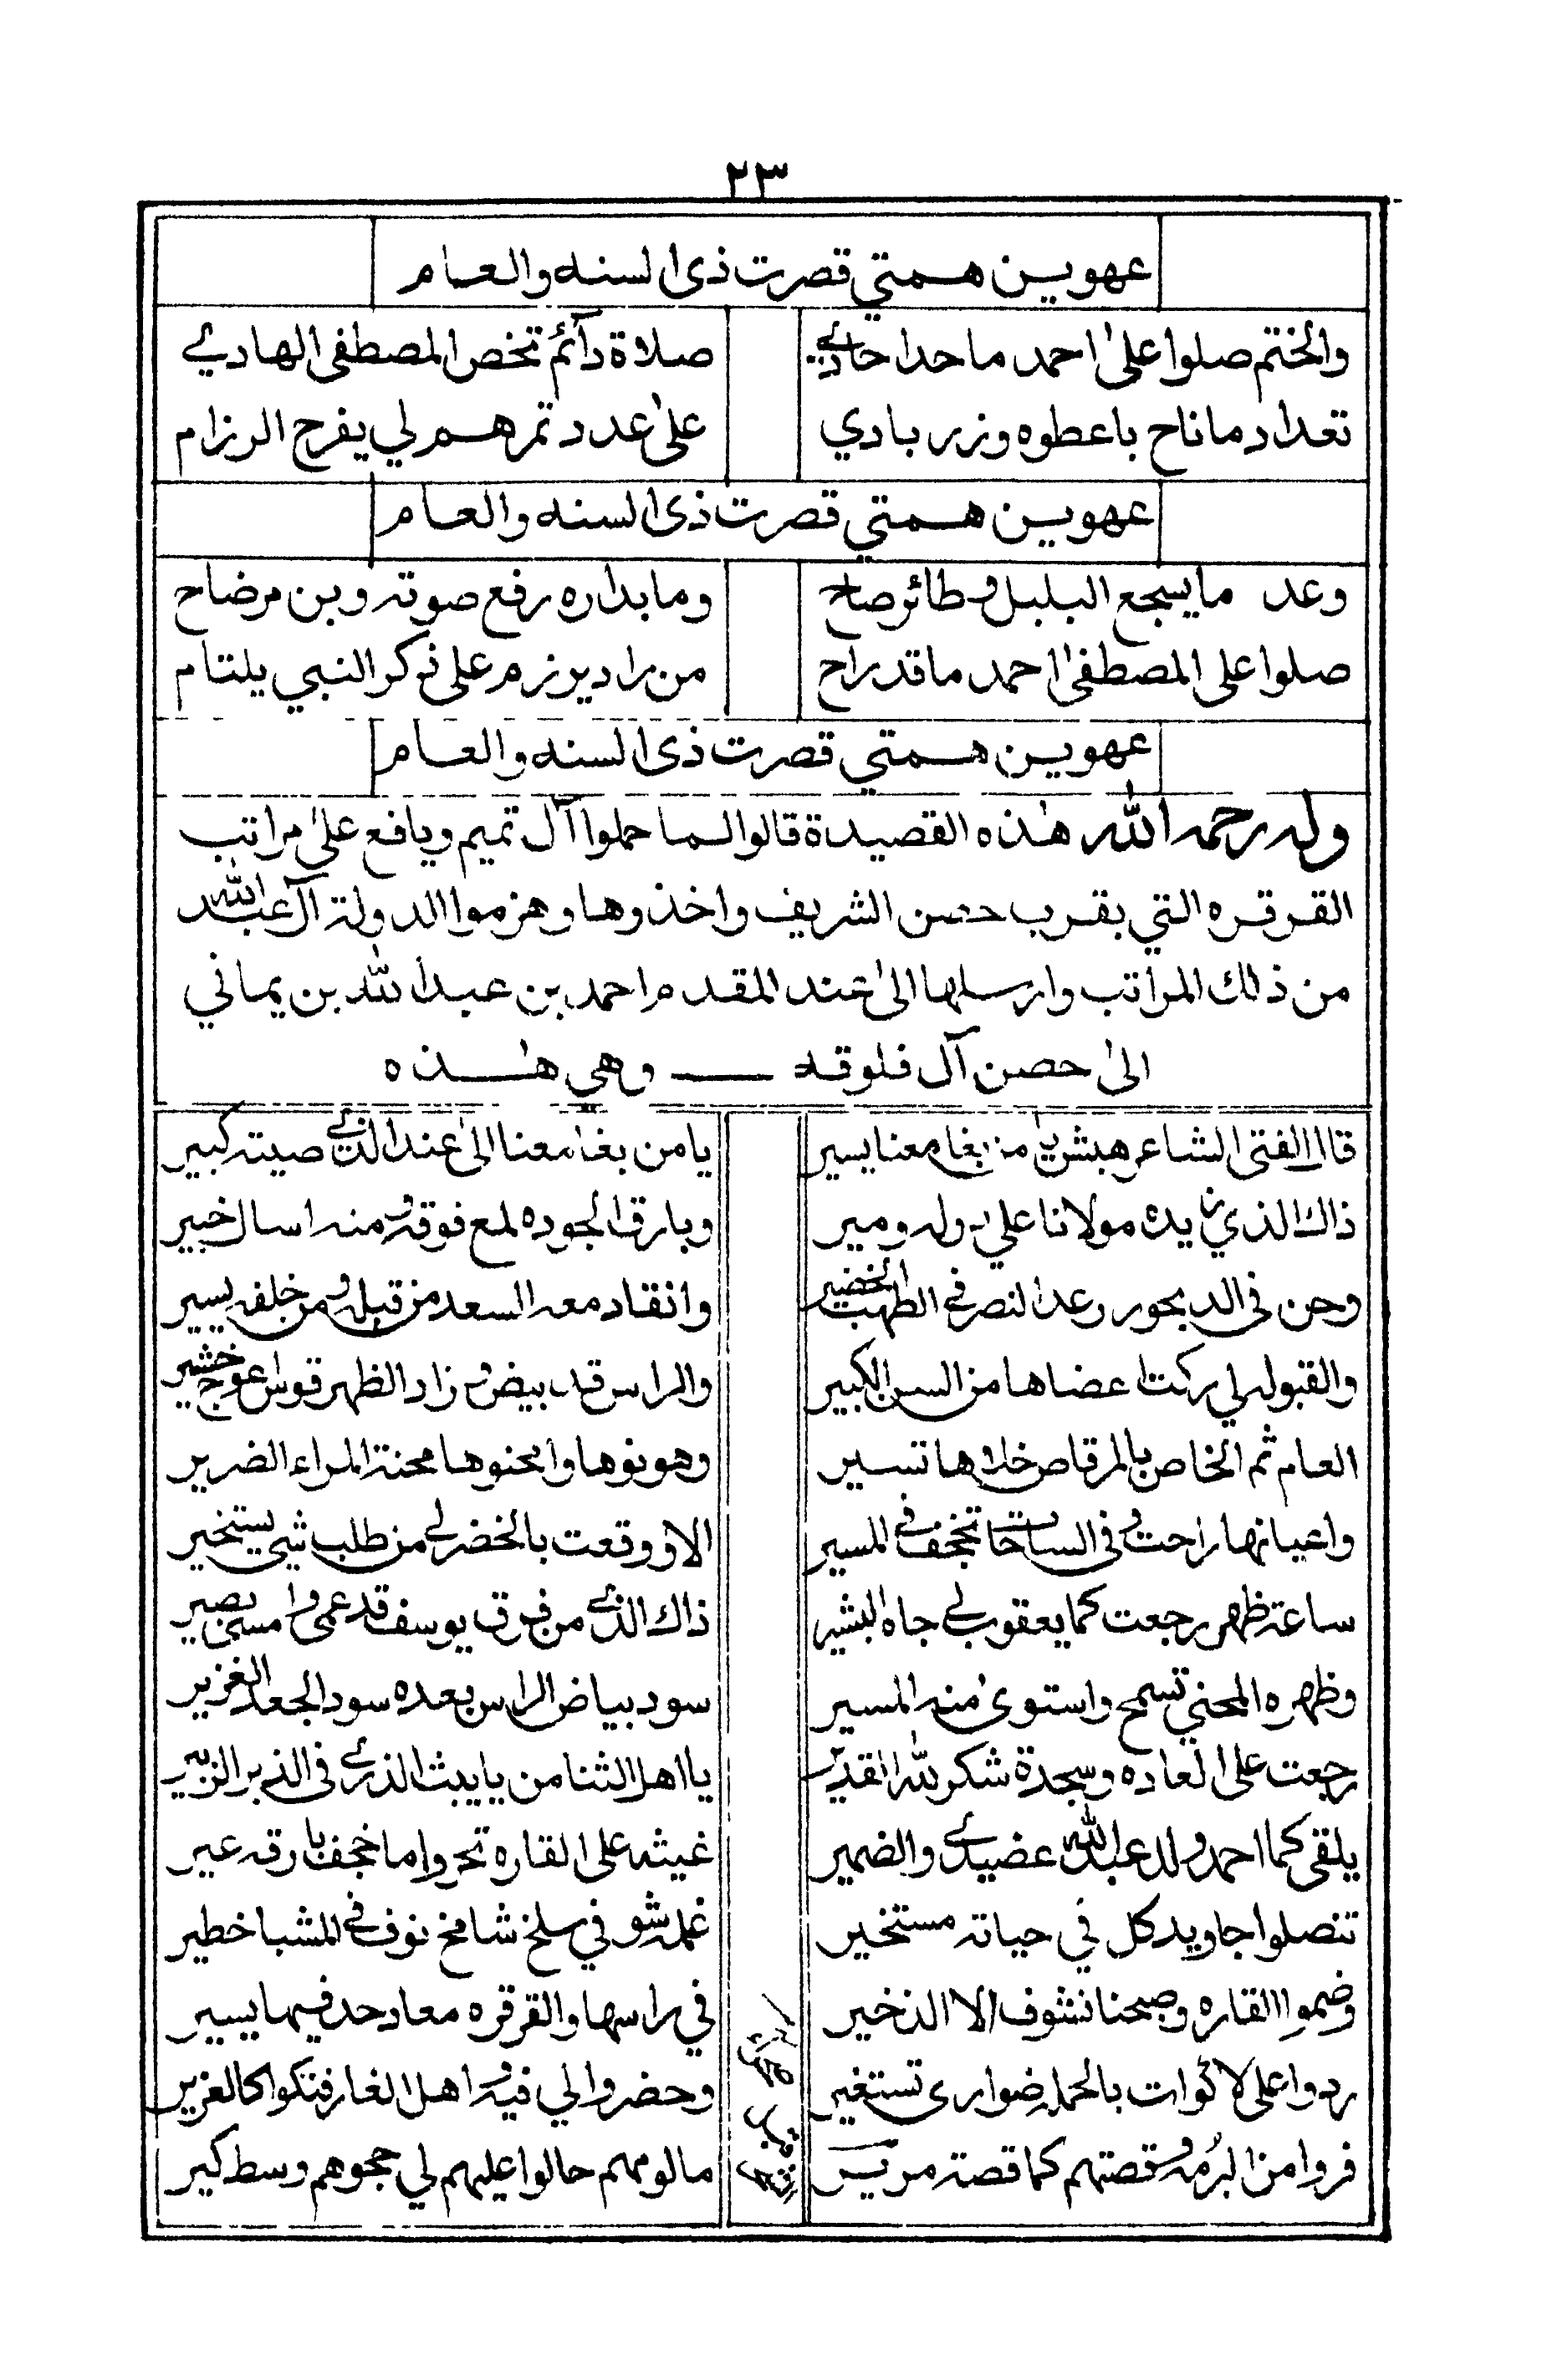 ٢٣
عهوين همتي قصرت ذى السنه والعام
والختم صلوا على احمد ما حدا حادي صلاة دائم تخص المصطفى الهادي
تعداد ما ناح باعطوه وزر بادي على عدد تمرهم لي يفرح الرزام
عهوين همتي قصرت ذى السنه والعام
وعد ما يسجع البلبل وطائر صاح وما بداره رفع صوته وبن مرضاح
صلوا على المصطفى احمد ما قد راح من راد يرزم على ذكر النبي يلتام
عهوين همتي قصرت ذى السنه والعام
وله رحمه الله هذه القصيدة قالوا لما حملوا آل تميم ويافع على مراتب
القرقره التي بقرب حصن الشريف واخذوها وهزموا الدولة آل عبدالله
من ذلك المراتب وارسلها الى عند المقدم احمد بن عبدالله بن يماني
الى حصن آل فلوقه — وهي هذه
قال الفتى الشاعر هبش يا من بغا معنا يسير يا من بغا معنا الى عند الذي صيته كبير
ذاك الذي يده مولانا علي وله ومير وبارق الجوده لمع فوقه ومنه اسال خبير
وحن في الديجور رعد النصر في الطهب الخضير وانقاد معه السعد من قبله ومن خلفه يسير
والقبوله لي ركت اعضاها من السن الكبير والراس قد بيض وزاد الظهر قوس اعوج خشير
العام ثم الخاص بالمرقاص خلاها تسير وهونوها وامحنوها محنة المراء الضرير
واعيانها راحت وفي الساحات تخجف في المسير الا ووقعت بالخضر لي من طلب شي يستخير
ساعة ظهر رجعت كما يعقوب لي جاه البشير ذاك الذي من فرق يوسف قد عمى وامسى بصير
وظهره المحني تسمح واستوى منه المسير سود بياض الراس بعده سود الجعد الغزير
رجعت على العاده وسجدة شكر لله القدير يا اهل الثنا من يا يبث الذري في الذبر الزبير
يلقى كما احمد ولد عبدالله عضيدي والضمير غيثه على القاره تحر واما خجف بارقه عير
تنصلوا جاويد كل في حياته مستخير غمله شو في سلخ شامخ نوف في المشبا خطير
وضموا القاره وصبحنا نشوف الا الذخير في راسها والقرقره معاد حد فيها يسير
ردوا على لا كوات بالحمله ضواري تستغير وحضروا لي فيه اهل الغار فتكوا كالغزير
فروا من البرمه وقصتهم كما قصة مريس ما لومهم حالوا عليهم لي حجوهم وسط كير